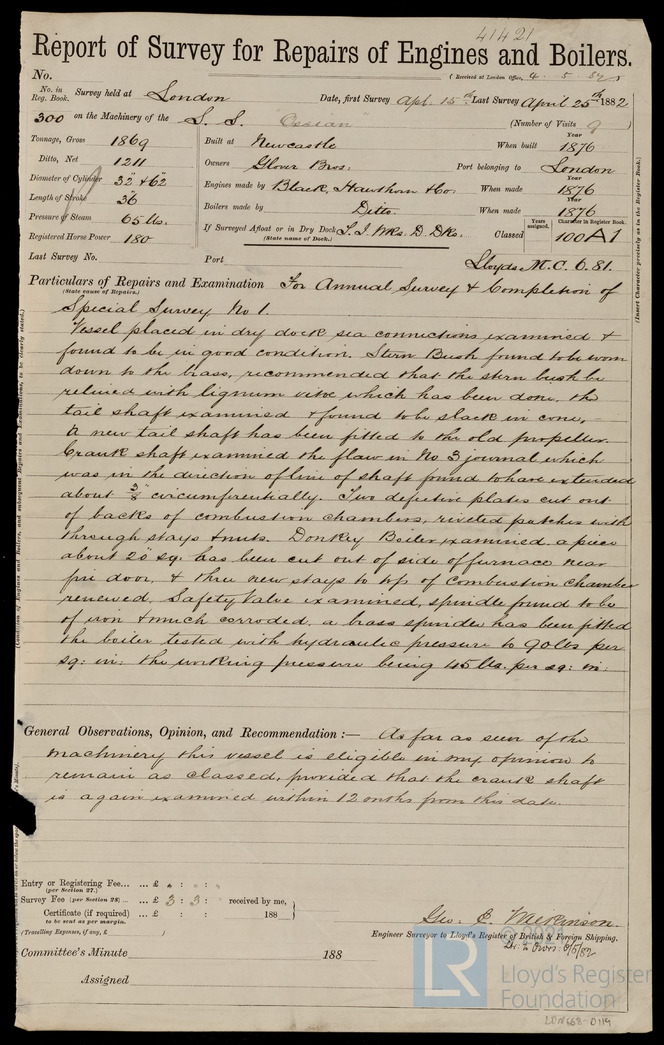 41421
Report of Survey for Repairs of Engines and Boilers.
No. (Received at London Office, 4 . 5 . 82
No. in Reg. Book. Survey held at London Date, first Survey Apl. 15th Last Survey April 25th 1882
300 on the Machinery of the S. S. "Ossian" (Number of Visits 9
Tonnage, Gross 1869 Built at Newcastle When built Year 1876
Ditto, Net 1211 Owners Glover Bros. Port belonging to London
Diameter of Cylinder 32" & 62" Engines made by Black, Hawthorn & Co. When made Year 1876
Length of Stroke 36" Boilers made by Ditto. When made Year 1876
Pressure of Steam 65 lbs. If Surveyed Afloat or in Dry Dock Classed Years assigned. Character in Register Book. 100A1
Registered Horse Power 180 (State name of Dock.)
Last Survey No. Port Lloyds. M.C. 6.81.
Particulars of Repairs and Examination For Annual Survey & Completion of
(State cause of Repairs.) Special Survey No 1.
Vessel placed in dry dock sea connections examined &
found to be in good condition. Stern Bush found to be worn
down to the brass, recommended that the stern bush be
relined with lignum vitæ which has been done. the
tail shaft examined & found to be slack in cone,
A new tail shaft has been fitted to the old propeller.
Crank shaft examined the flaw in No 3 journal which
was in the direction of line of shaft found to have extended
about 3/8" circumferentially. Two defective plates cut out
of backs of combustion chambers, riveted patches with
through stays & nuts. Donkey Boiler examined a piece
about 20" sq: has been cut out of side of furnace near
fire door, & three new stays to top of Combustion chamber
renewed, Safety Valve examined, spindle found to be
of iron & much corroded, a brass spindle has been fitted
the boiler tested with hydraulic pressure to 90 lbs per
sq: in: the working pressure being 45 lbs. per sq: in:
General Observations, Opinion, and Recommendation :— As far as seen of the
machinery this vessel is eligible in my opinion to
remain as classed, provided that the crank shaft
is again examined within 12 onths from this date.
Entry or Registering Fee... ... £ : :
(per Section 27.)
Survey Fee (per Section 28) ... ... £ 3 : 3 : received by me,
Certificate (if required) ... £ : : 188
to be sent as per margin.
(Travelling Expenses, if any, £ )
Geo. C. Wilkinson.
Engineer Surveyor to Lloyd's Register of British & Foreign Shipping.
Committee's Minute 188
Assigned
(Insert Character precisely as in the Register Book.)
© 2021
LR
Lloyd's Register
Foundation
LON668-0119